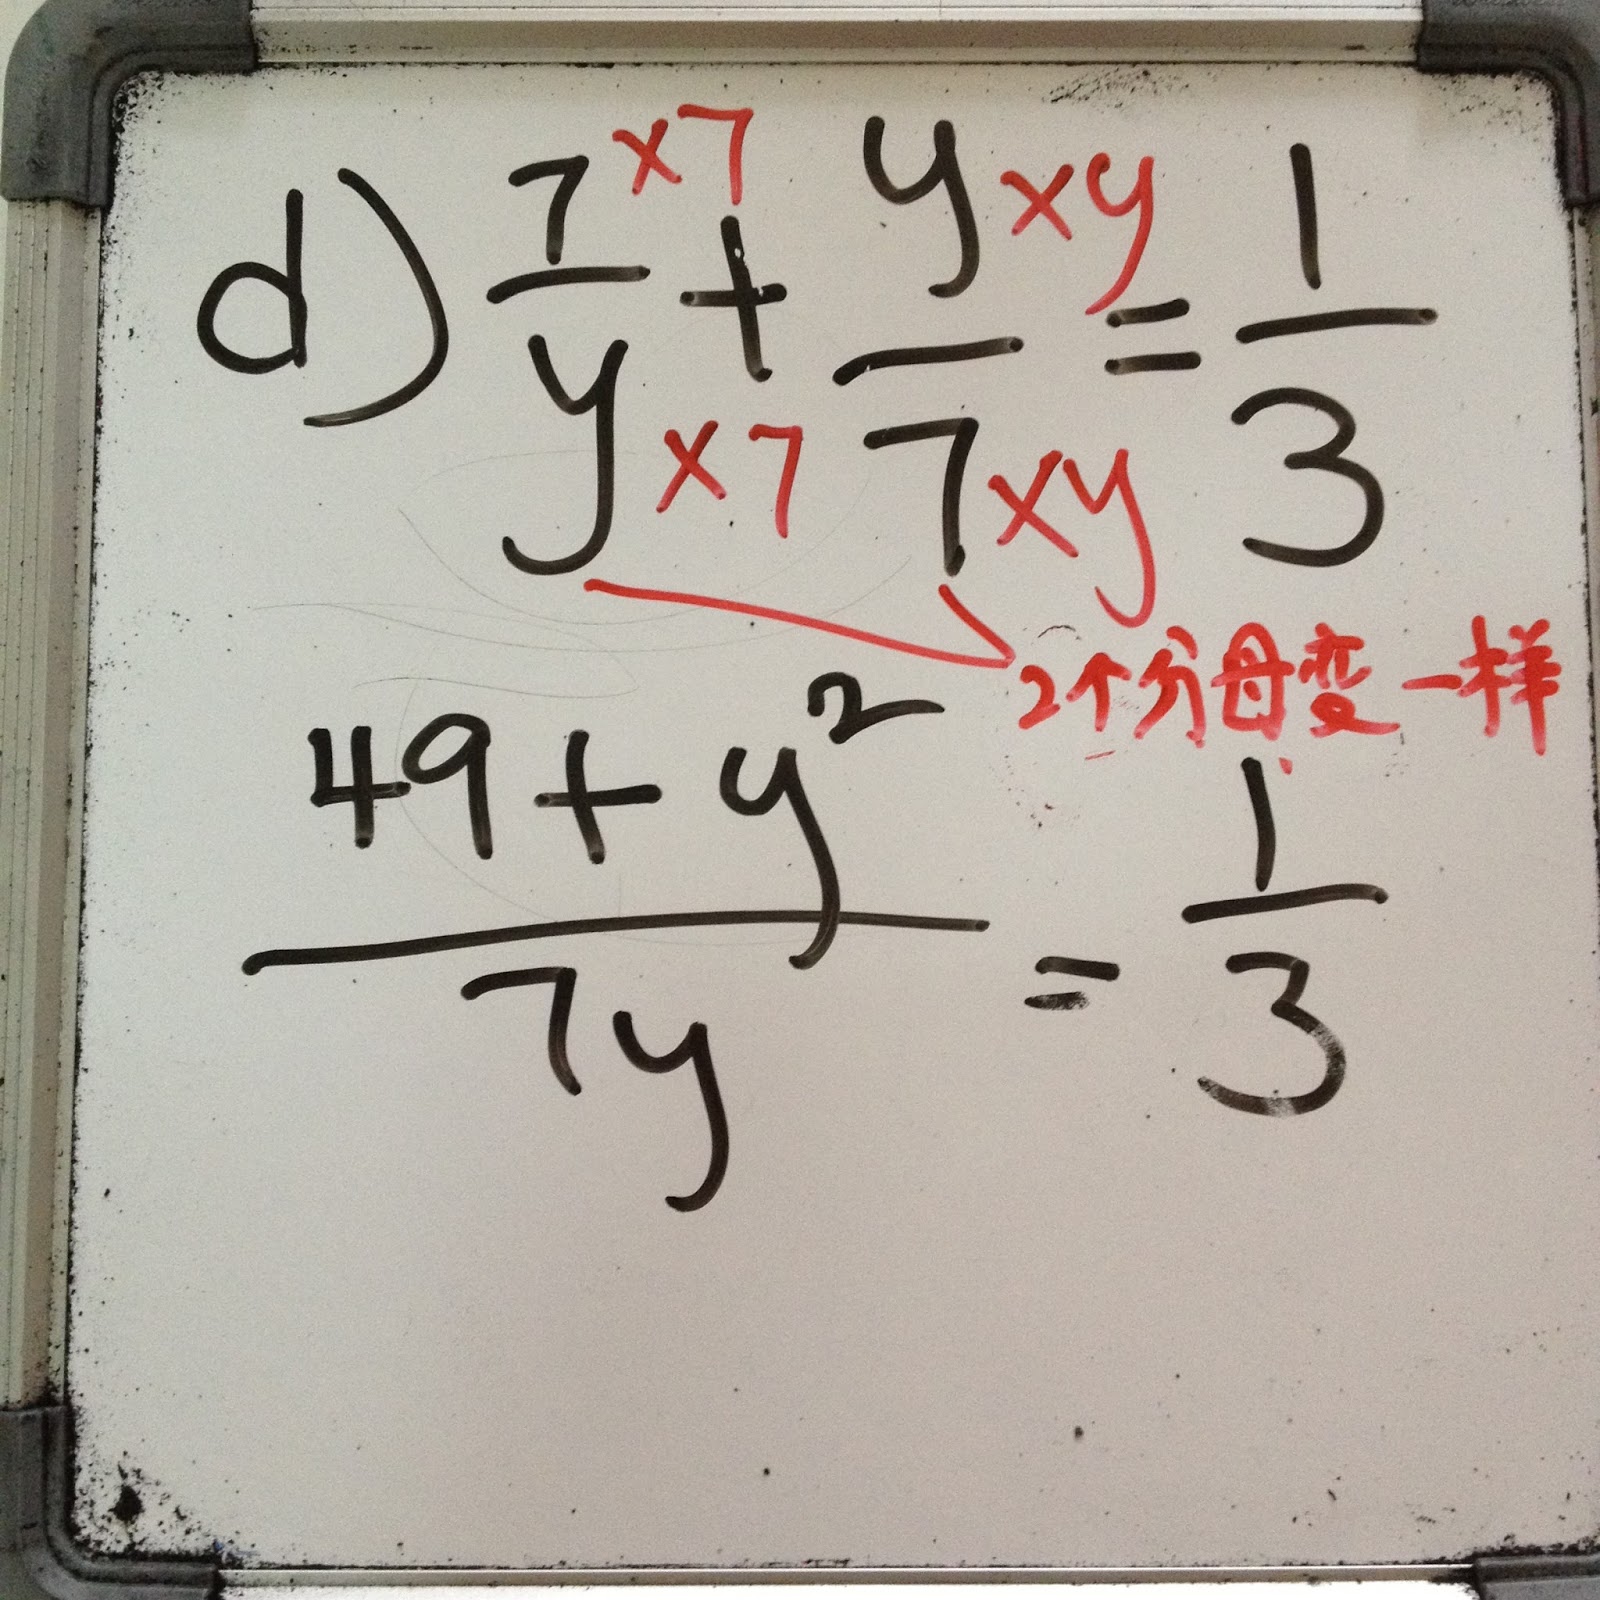 d) 7/y + y/7 = 1/3
×7 ×y
×7 ×y
2个分母变一样
49+y²/7y = 1/3